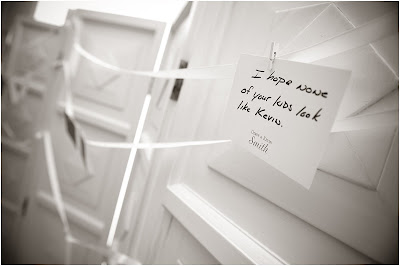 I hope none
of your kids look
like Kevin.
Smith